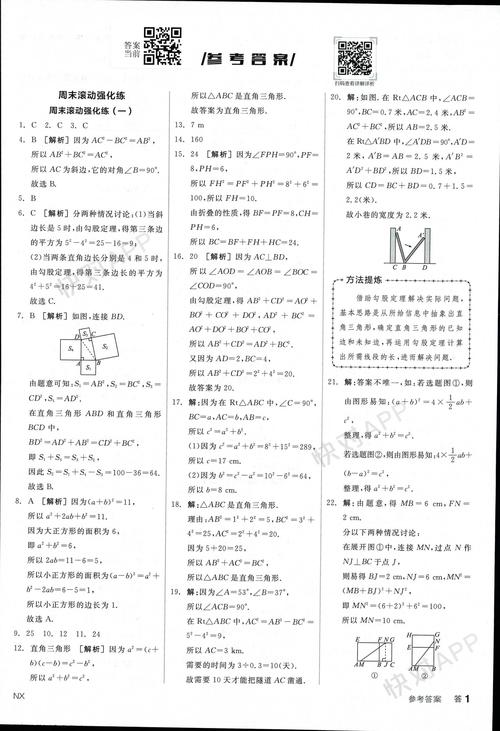 答案
当前
参考答案
扫码查看详解详析
周末滚动强化练
周末滚动强化练(一)
1. C 2. C 3. C
4. B [解析] 因为AC²−BC²=AB²,
所以AB²+BC²=AC²,
所以AC为斜边,它的对角∠B=90°.
故选B.
5. B
6. C [解析] 分两种情况讨论:(1)当斜
边长是5时,由勾股定理,得第三条边
的平方为5²−4²=25−16=9;
(2)当两条直角边长分别是4和5时,
由勾股定理,得第三条边长的平方为
4²+5²=16+25=41.
故选C.
7. B [解析] 如图,连接BD.
由题意可知:S₁=AB²,S₂=BC²,S₃=
CD²,S₄=AD².
在直角三角形ABD和直角三角形
BCD中,
BD²=AD²+AB²=CD²+BC²,
即S₁+S₄=S₃+S₂,
因此S₄=100−36=64.
故选B.
8. A [解析] 因为(a+b)²=11,
所以a²+2ab+b²=11.
因为大正方形的面积为6,
即a²+b²=6,
所以2ab=11−6=5,
所以小正方形的面积为(a−b)²=a²+
b²−2ab=6−5=1,
所以小正方形的边长为1.
故选A.
9. 25 10. 12 11. 24
12. 直角三角形 [解析] 因为a²=(c+
b)(c−b)=c²−b²,
所以a²+b²=c²,
所以△ABC是直角三角形.
故答案为直角三角形.
13. 7 m
14. 160
15. 24 [解析] 因为∠FPH=90°,PF=
8,PH=6,
所以FH²=PF²+PH²=8²+6²=
100,所以FH=10.
由折叠的性质,得BF=PF=8,CH=
PH=6,
所以BC=BF+FH+HC=24.
16. 20 [解析] 因为AC⊥BD,
所以∠AOD=∠AOB=∠BOC=
∠COD=90°,
由勾股定理,得AB²+CD²=AO²+
BO²+CO²+DO²,AD²+BC²=
AO²+DO²+BO²+CO²,
所以AB²+CD²=AD²+BC².
又因为AD=2,BC=4,
所以AB²+CD²=2²+4²=20.
故答案为20.
17. 解:因为在Rt△ABC中,∠C=90°,
BC=a,AC=b,AB=c,
所以c²=a²+b².
(1)因为c²=a²+b²=8²+15²=289,
所以c=17 cm.
(2)因为b²=c²−a²=10²−6²=64,
所以b=8 cm.
18. 解:△ABC是直角三角形.
理由:AB²=1²+2²=5,BC²=3²+
4²=25,AC²=2²+4²=20.
因为5+20=25,
所以AB²+AC²=BC²,
所以△ABC是直角三角形.
19. 解:因为∠A=53°,∠B=37°,
所以∠ACB=90°.
在Rt△ABC中,AC²=AB²−BC²=
5²−4²=9,
所以AC=3 km.
需要的时间为3÷0.3=10(天).
故需要10天才能把隧道AC凿通.
20. 解:如图.在Rt△ACB中,∠ACB=
90°,BC=0.7米,AC=2.4米,AB²=
AC²+BC²,所以AB=2.5米.
在Rt△A'BD中,∠A'DB=90°,A'D=
2米,A'B=AB=2.5米,A'B²=
A'D²+BD²,所以BD=1.5米,
所以CD=BC+BD=0.7+1.5=
2.2(米).
故小巷的宽度为2.2米.
方法提炼
借助勾股定理解决实际问题,
基本思路是从所给信息中抽象出直
角三角形,确定直角三角形的已知
边和未知边,再运用勾股定理计算
出所需线段的长,进而解决问题.
21. 解:答案不唯一,如:若选题图①,则
由图形易知:(a+b)²=4×½ab+
c²,
整理,得a²+b²=c².
若选题图②,则由图形易知:4×½ab+
(b−a)²=c²,
整理,得a²+b²=c².
22. 解:由题意,得MB=6 cm,FN=
2 cm.
分以下两种情况讨论:
在展开图①中,连接MN,过点N作
NJ⊥BC于点J,
则易得BJ=2 cm,NJ=6 cm,MN²=
(MB+BJ)²+NJ²,
即MN²=(6+2)²+6²=100,
所以MN=10 cm.
① ②
快对APP
快对APP
快对APP
NX
参考答案 答1